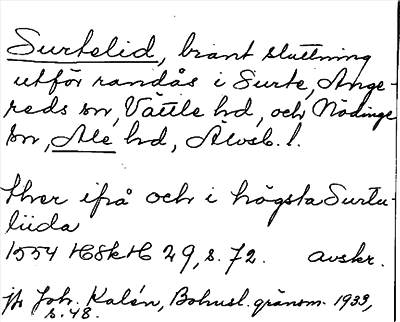 Surtelid, brant sluttning
utför randås i Surte, Ange-
reds sn, Vättle hd, och Nödinge
sn, Ale hd, Älvsb. l.
ther ifrå och i högsta Surtu-
liida
1554 HSkH 29, s. 72. avskr.
jfr Joh. Kalén, Bohusl. gränsm. 1933,
s. 48.